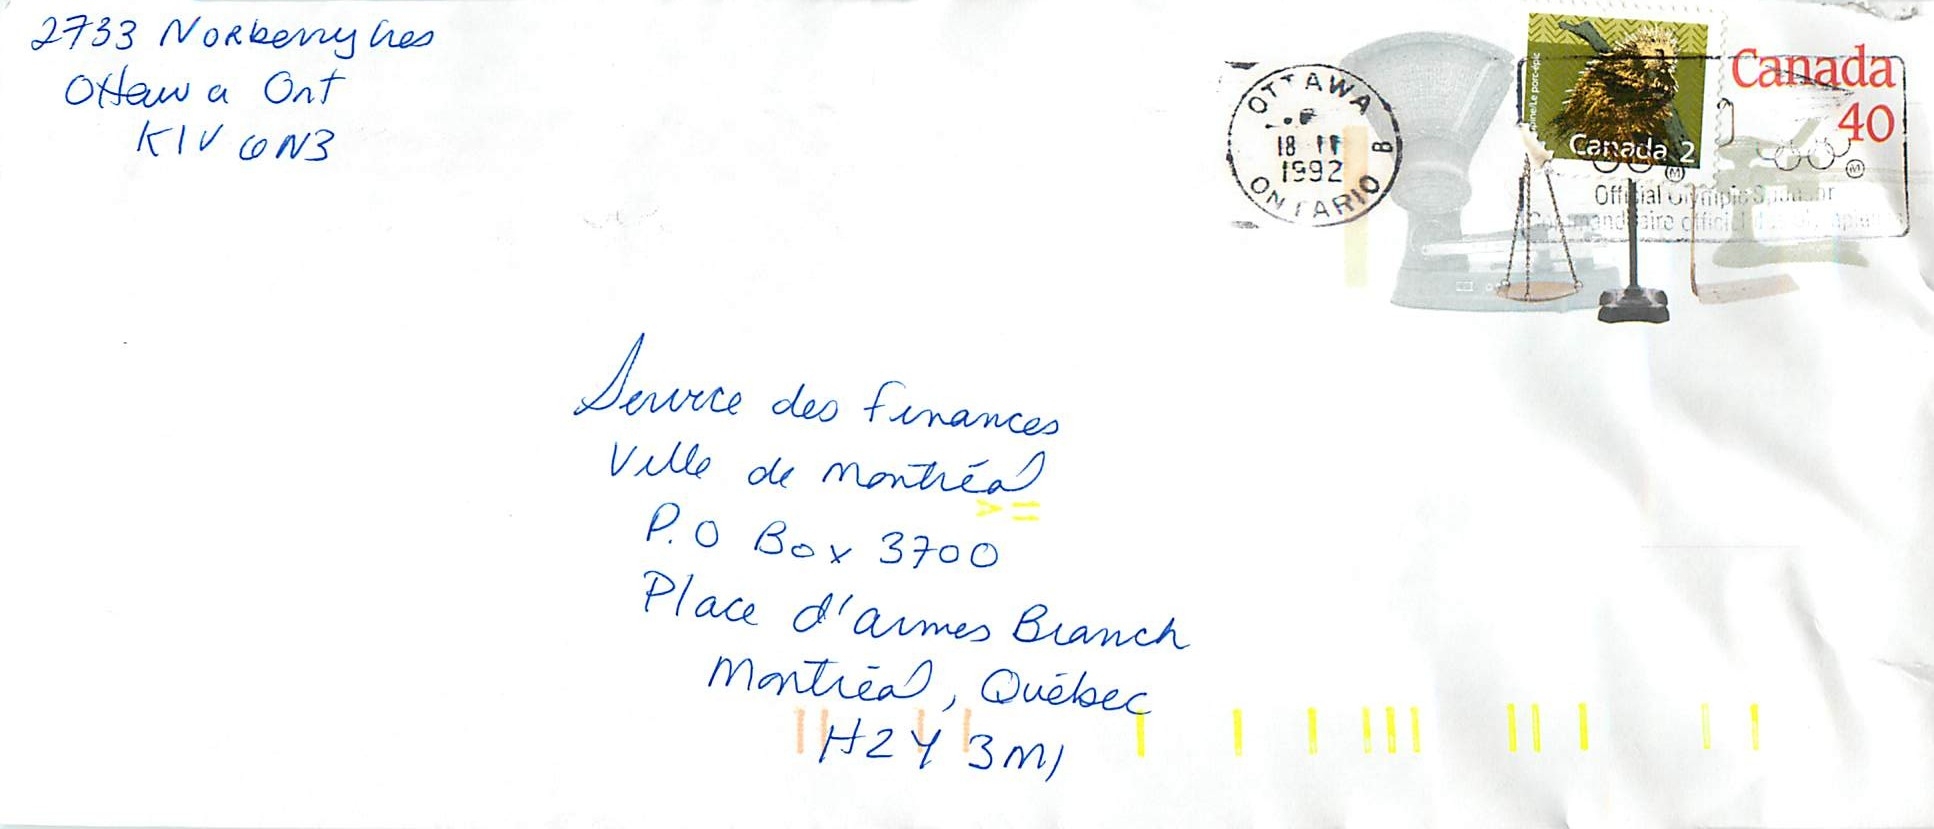 2733 Norberry Cres
Ottawa Ont
K1V 6N3
OTTAWA
18 II
1992
B
ONTARIO
Le porc-épic
Canada 2
Canada
40
Official Olympic Sponsor
Commanditaire officiel des Olympiques
Service des Finances
Ville de Montréal
P.O Box 3700
Place d'armes Branch
Montréal, Québec
H2Y 3M1